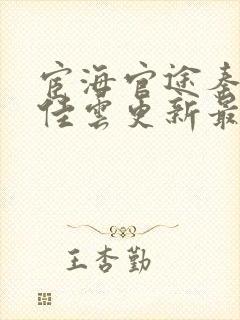 宦海官途秦
佳云更新最
王杏勤